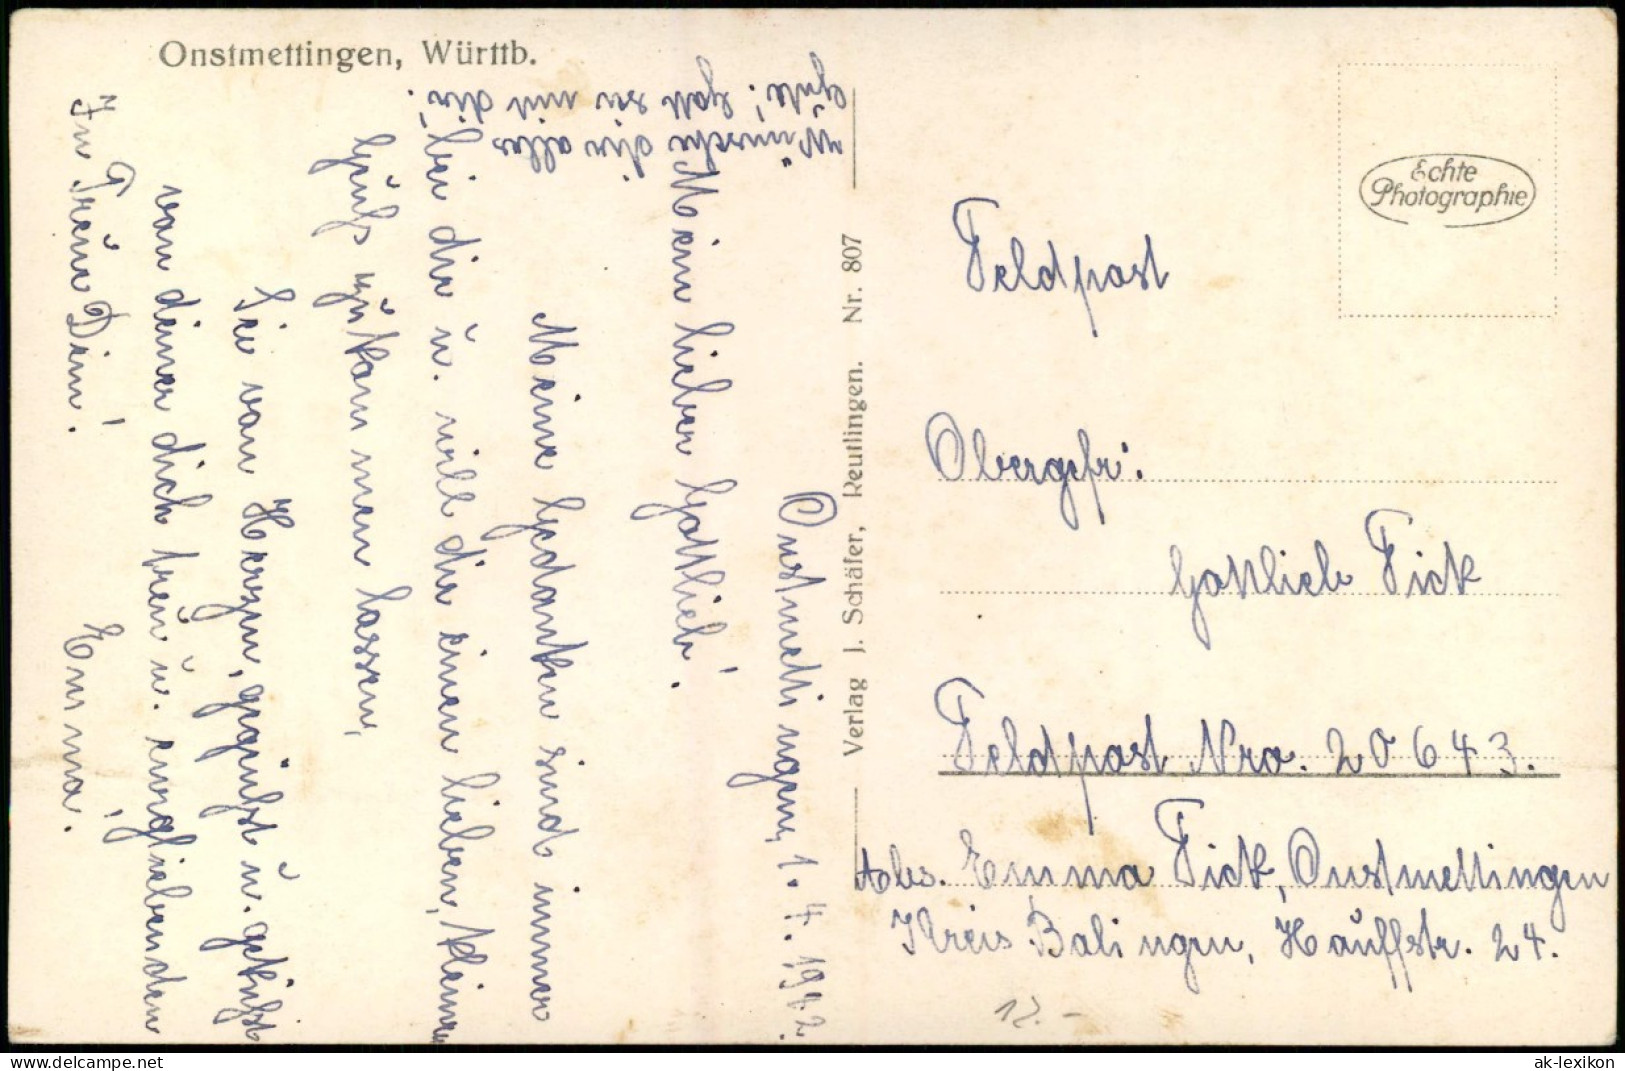 Onstmettingen, Württb.
Onstmettingen, 1. 4. 1942
Mein lieber Gottlieb!
Meine Gedanken sind immer
bei dir u. will dir einen lieben, kleinen
Gruß zukommen lassen,
Sei von Herzen, gegrüßt u. geküßt
von deiner dich treu u. ewigliebenden
Emma!
In Treue Dein!
Wünsche dir alles
Gute! Gott sei mit dir!
Verlag J. Schäfer, Reutlingen. Nr. 807
Echte
Photographie
Feldpost
Obergefr:
Gottlieb Fick
Feldpost Nro. 20643.
Abs. Emma Fick, Onstmettingen
Kreis Balingen, Hauffstr. 24.
12.-
www.delcampe.net
the_postcard_store
ak-lexikon